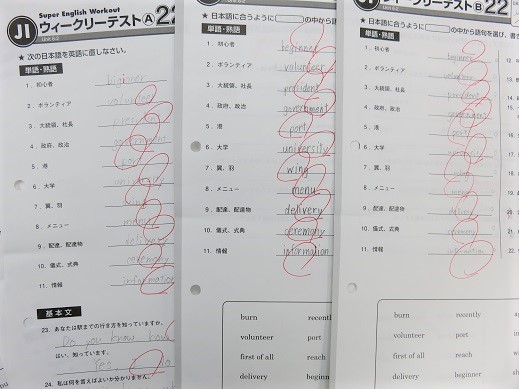 Super English Workout
J1 ウィークリーテスト A 22
★ 次の日本語を英語に直しなさい。
単語・熟語
1. 初心者 beginner
2. ボランティア volunteer
3. 大統領、社長 president
4. 政府、政治 government
5. 港 port
6. 大学 university
7. 翼、羽 wing
8. メニュー menu
9. 配達、配達物 delivery
10. 儀式、式典 ceremony
11. 情報 information
基本文
23. あなたは駅までの行き方を知っていますか。
Do you know how
はい、知っています。
Yes,
24. 私は何を言えばよいか分かりません。
★ 日本語に合うように の中から
単語・熟語
1. 初心者 beginner
2. ボランティア volunteer
3. 大統領、社長 president
4. 政府、政治 government
5. 港 port
6. 大学 university
7. 翼、羽 wing
8. メニュー menu
9. 配達、配達物 delivery
10. 儀式、式典 ceremony
11. 情報 information
burn recently
volunteer port
first of all reach
delivery beginner
ウィークリーテスト B 22
★ 日本語に合うように の中から語句を選び、書き
単語・熟語
1. 初心者 beginner
2. ボランティア volunteer
3. 大統領、社長 president
4. 政府、政治 government
5. 港 port
6. 大学 university
7. 翼、羽 wing
8. メニュー menu
9. 配達、配達物 delivery
10. 儀式、式典 ceremony
11. 情報 information
12.
13.
14.
15.
16.
17.
18.
19.
20.
21.
22.
burn recently
volunteer port
first of all reach
delivery beginner